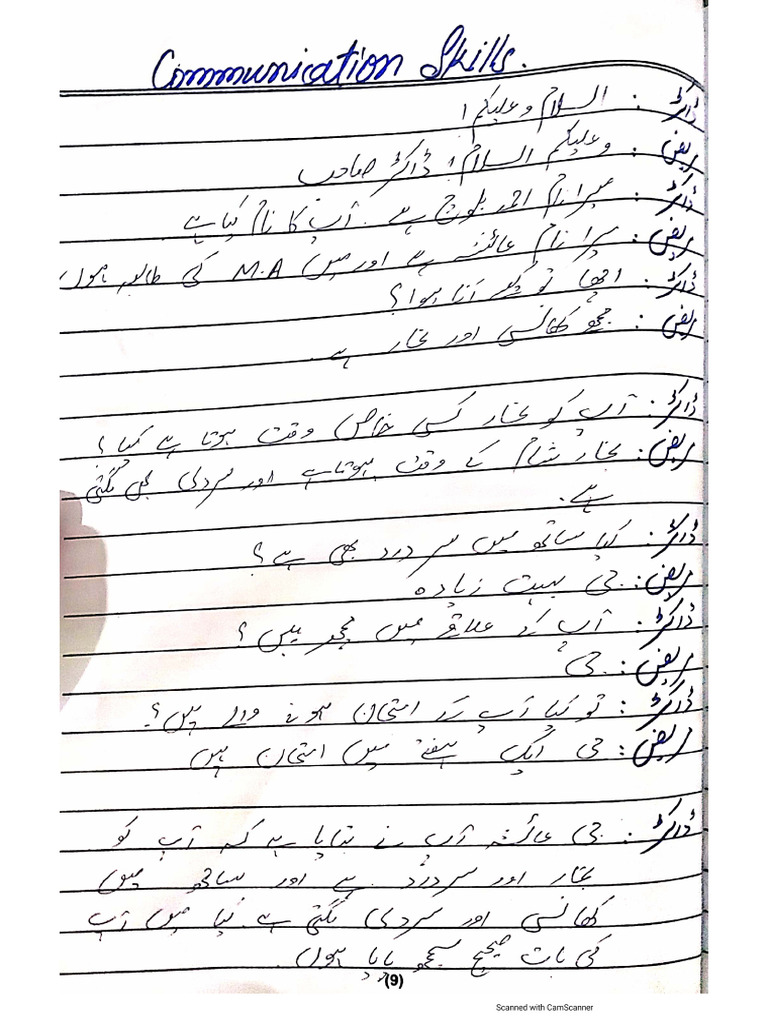 Communication Skills.
ڈاکٹر : السلام و علیکم !
مریض : وعلیکم السلام ! ڈاکٹر صاحب
ڈاکٹر : میرا نام احمد بلوچ ہے . آپ کا نام کیا ہے
مریض : میرا نام عائشہ ہے اور میں M.A کی طالبہ ہوں
ڈاکٹر : اچھا تو کیسے آنا ہوا ؟
مریض : مجھے کھانسی اور بخار ہے .
ڈاکٹر : آپ کو بخار کسی خاص وقت ہوتا ہے کیا ؟
مریض : بخار شام کے وقت ہوتا ہے اور سردی بھی لگتی
ہے .
ڈاکٹر : کیا ساتھ میں سر درد بھی ہے ؟
مریض : جی بہت زیادہ
ڈاکٹر : آپ کے علاقے میں مچھر ہیں ؟
مریض : جی
ڈاکٹر : تو کیا آپ کے امتحان ہونے والے ہیں ؟
مریض : جی اگلے ہفتے میں امتحان ہیں
ڈاکٹر : جی عائشہ آپ نے بتایا ہے کہ آپ کو
بخار اور سر درد ہے اور ساتھ میں
کھانسی اور سردی لگتی ہے . کیا میں آپ
کی بات صحیح سمجھ پایا ہوں .
(9)
Scanned with CamScanner